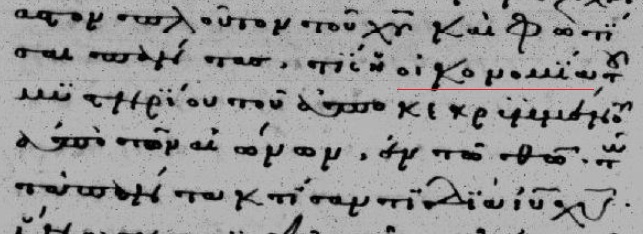 αστον πλοῦτον τοῦ χῦ καὶ φωτί
σαι πάντας, τίς ἡ οἰκονομΐα τοῦ
μϋστηρίου τοῦ ἀποκεκρυμμένου
ἀπὸ τῶν αἰώνων, ἐν τῶ θῶ. τῶ
τὰ πάντα κτίσαντι διὰ ἰῦ χῦ.